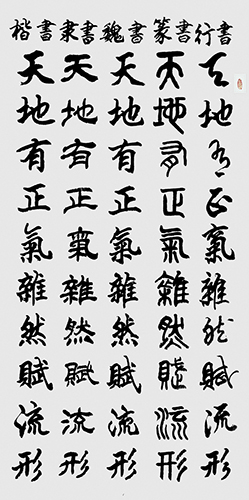 楷書 隸書 魏書 篆書 行書
天 天 天 天 天
地 地 地 地 地
有 有 有 有 有
正 正 正 正 正
氣 氣 氣 氣 氣
雜 雜 雜 雜 雜
然 然 然 然 然
賦 賦 賦 賦 賦
流 流 流 流 流
形 形 形 形 形